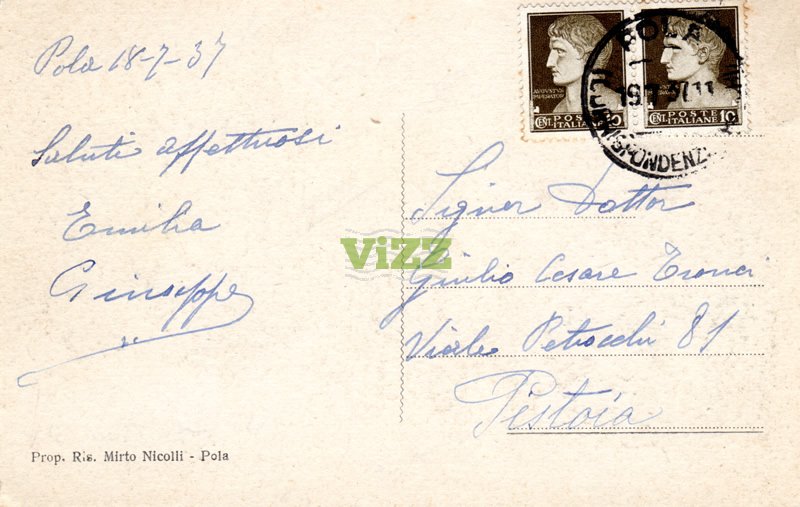 Pola 18-7-37
Saluti affettuosi
Emilia
Giuseppe
Prop. Ris. Mirto Nicolli - Pola
AUGUSTUS
IMPERATOR
CENT. POSTE
ITALIANE
CENT. POSTE 10
ITALIANE
POLA
CORRISPONDENZ
Signor Dottor
Giulio Cesare Tronci
Viale Petrocchi 81
Pistoia
ViZZ